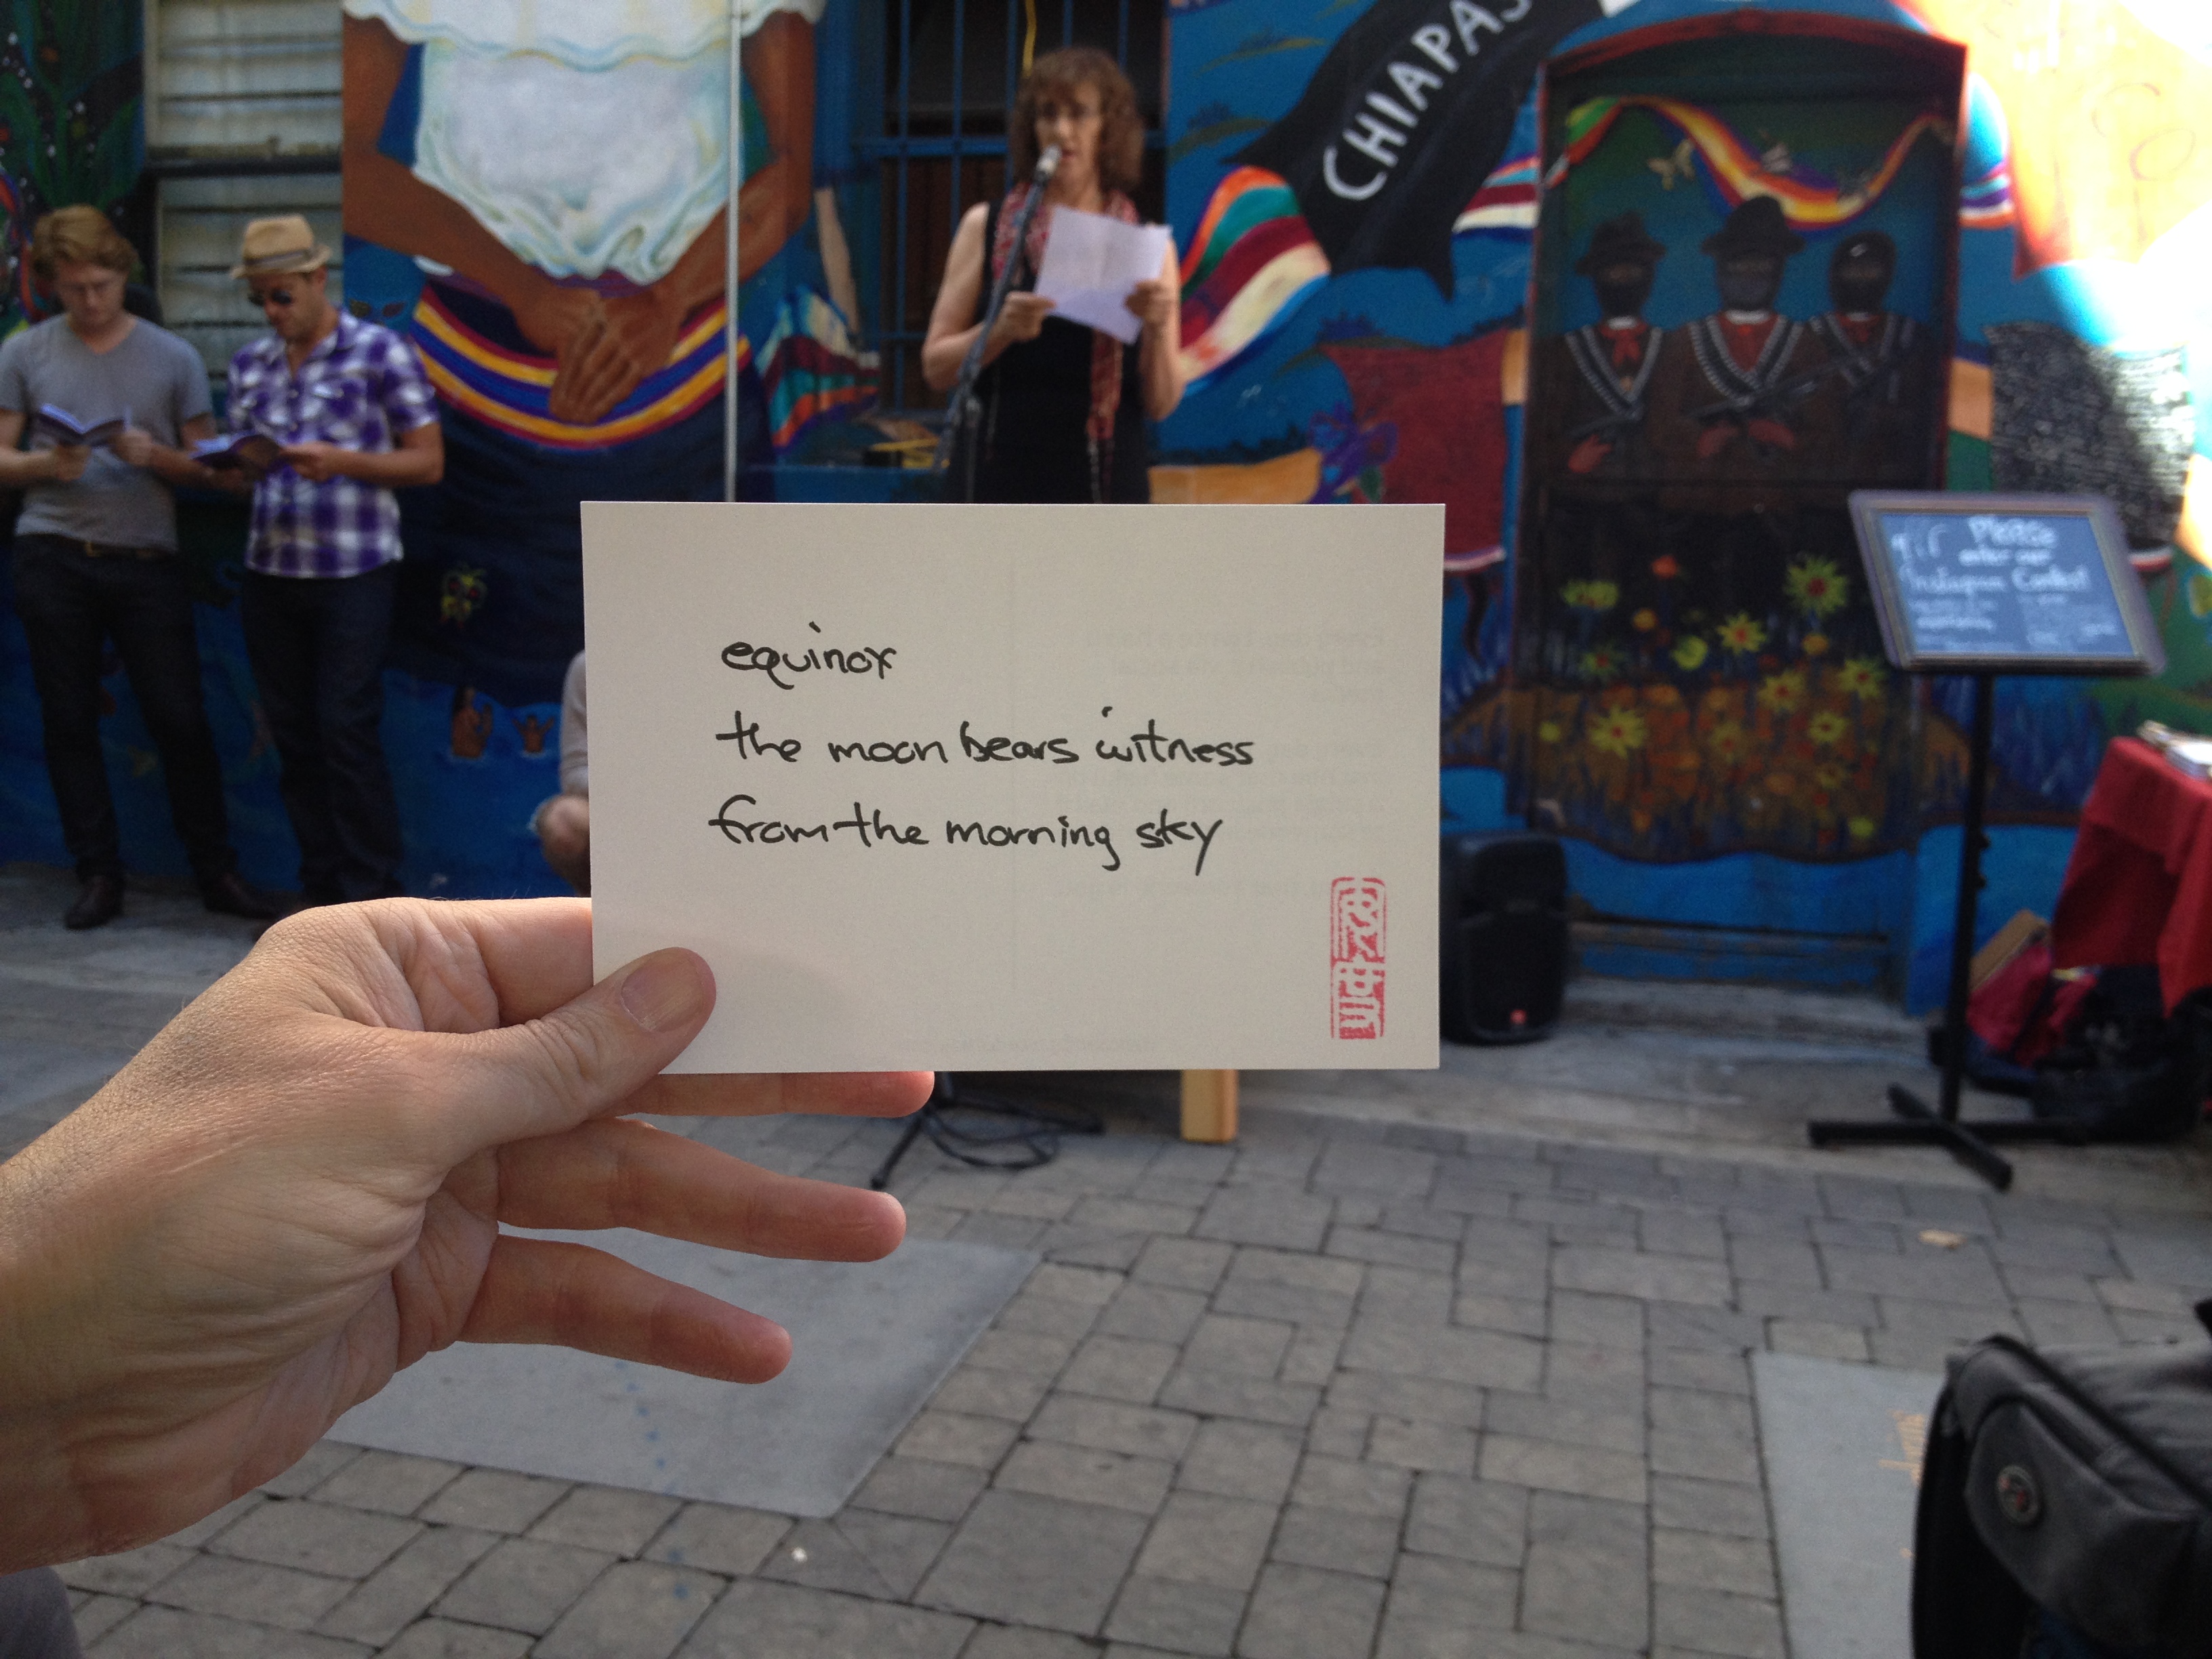 CHIAPAS
equinox
the moon bears witness
from the morning sky
Please
enter our
Instagram Contest